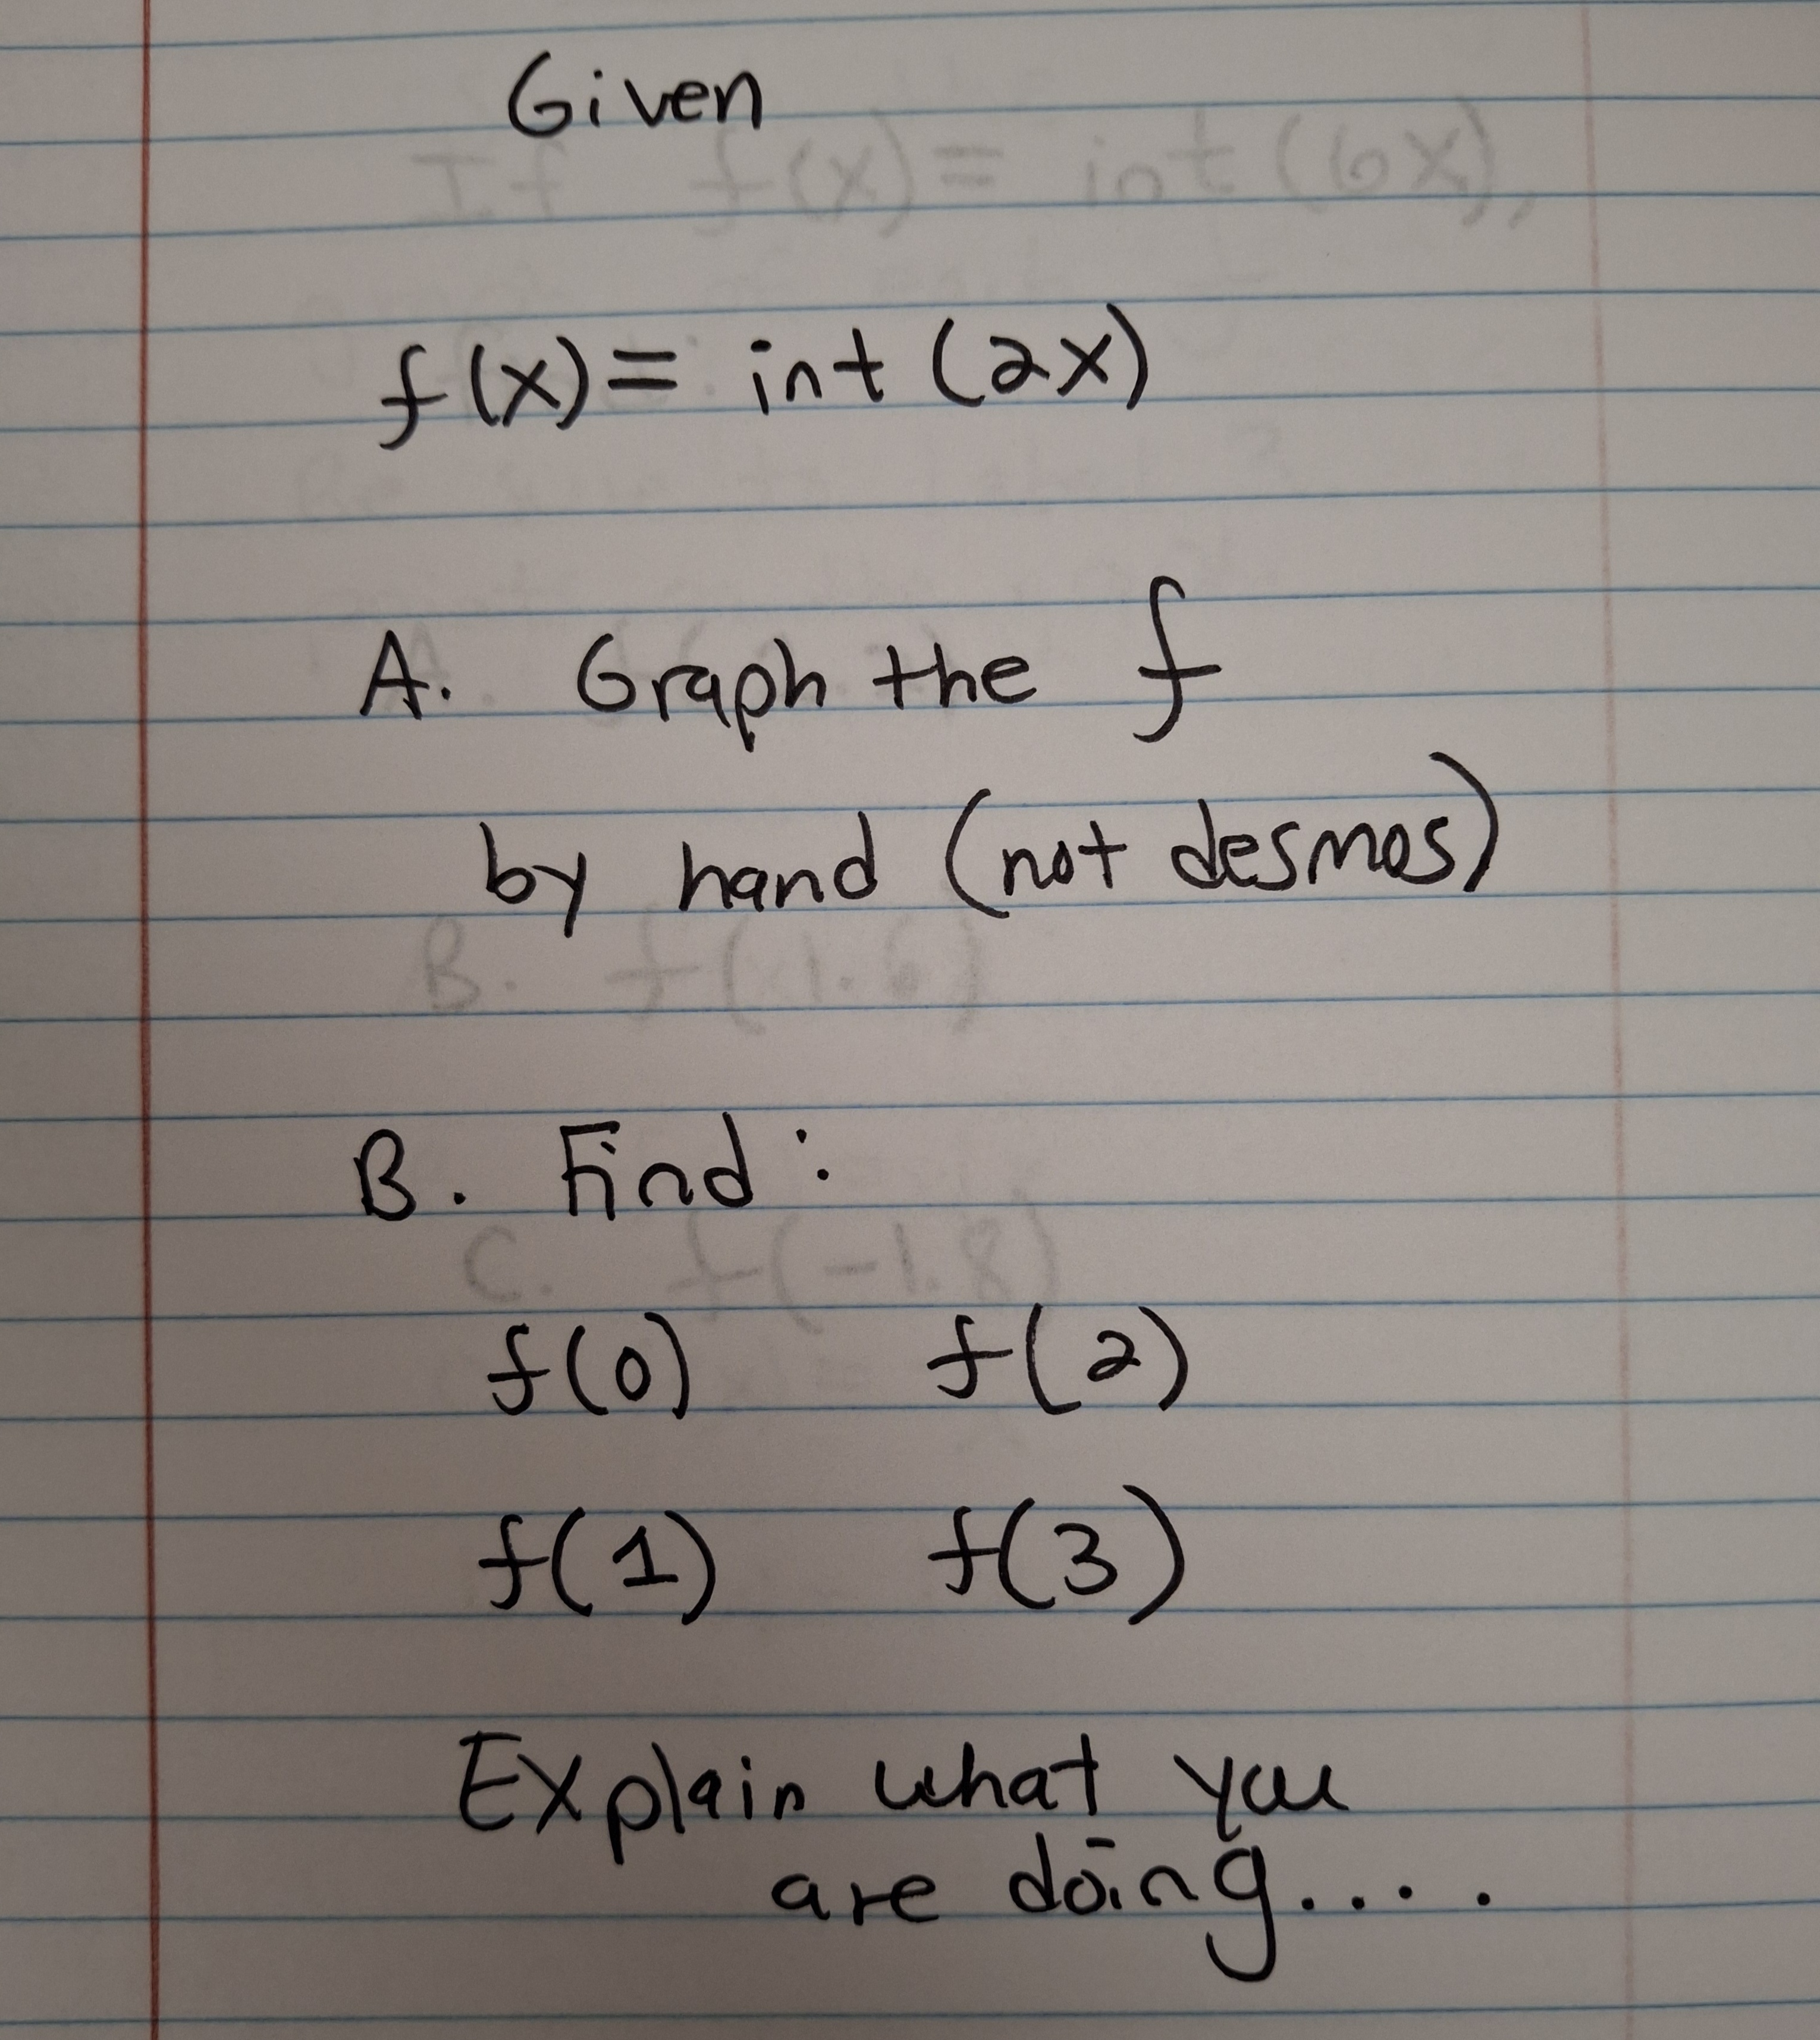 Given
If f(x) = int (6x),
f(x) = int (2x)
A. Graph the f
by hand (not desmos)
B. f(1.6)
B. Find :
C. f(-1.8)
f(0) f(2)
f(1) f(3)
Explain what you
are doing.....